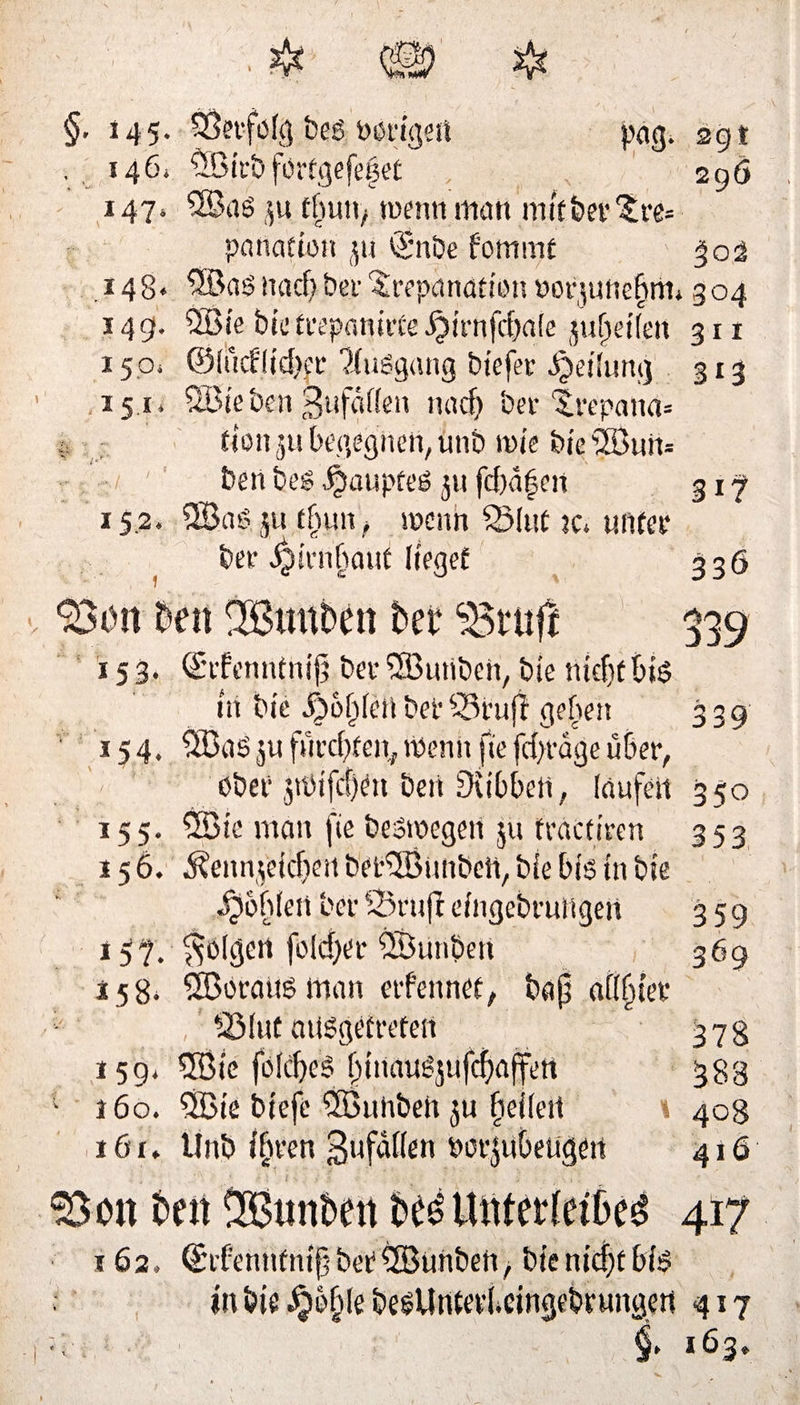 §. 145. Verfolg des vorigen pag. 291
146. Wird fortgesetzet 296
147. Was zu thun, wenn man mit der Tre=
panation zu Ende kommt 302
148. Was nach der Trepanation vorzunehm. 304
149. Wie die trepanirte Hirnschale zuheilen 311
150. Glücklicher Ausgang dieser Heilung 313
151. Wie den Zufällen nach der Trepana=
tion zu begegnen, und wie die Wun=
den des Hauptes zu schätzen 317
152. Was zu thun, wenn Blut ꝛc. unter
der Hirnhaut lieget 336
Von den Wunden der Brust 339
153. Erkenntniß der Wunden, die nicht bis
in die Höhlen der Brust gehen 339
154. Was zu fürchten, wenn sie schräge über,
oder zwischen den Ribben, laufen 350
155. Wie man sie deswegen zu tractiren 353
156. Kennzeichen der Wunden, die bis in die
Höhlen der Brust eingedrungen 359
157. Folgen solcher Wunden 369
158. Woraus man erkennet, daß allhier
Blut ausgetreten 378
159. Wie solches hinauszuschaffen 388
160. Wie diese Wunden zu heilen 408
161. Und ihren Zufällen vorzubeugen 416
Von den Wunden des Unterleibes 417
162. Erkenntniß der Wunden, die nicht bis
in die Höhle des Unterl. eingedrungen 417
§. 163.